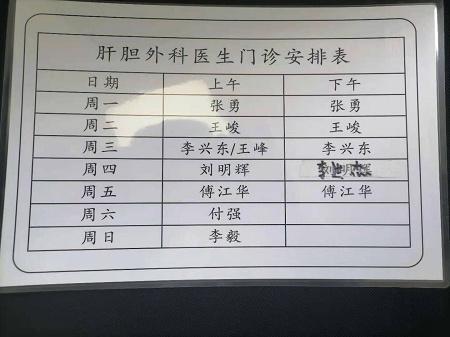 肝胆外科医生门诊安排表
日期 上午 下午
周一 张勇 张勇
周二 王峻 王峻
周三 李兴东/王峰 李兴东
周四 刘明辉
周五 傅江华 傅江华
周六 付强
周日 李毅